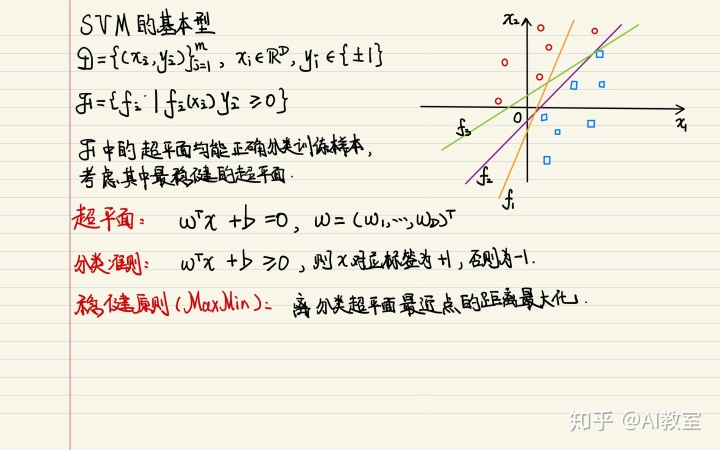 SVM的基本型
D={(xi,yi)}ᵐᵢ₌₁, xi∈ℝᴰ, yi∈{±1}
F={fi|fi(xi)yi≥0}
F中的超平面均能正确分类训练样本,
考虑其中最稳健的超平面.
超平面: wᵀx+b=0, w=(w₁,…,w_D)ᵀ
分类准则: wᵀx+b≥0, 则x对应标签为+1, 否则为-1.
稳健原则(MaxMin): 离分类超平面最近点的距离最大化.
x₂
0
x₁
f₃
f₂
f₁
知乎 @AI教室